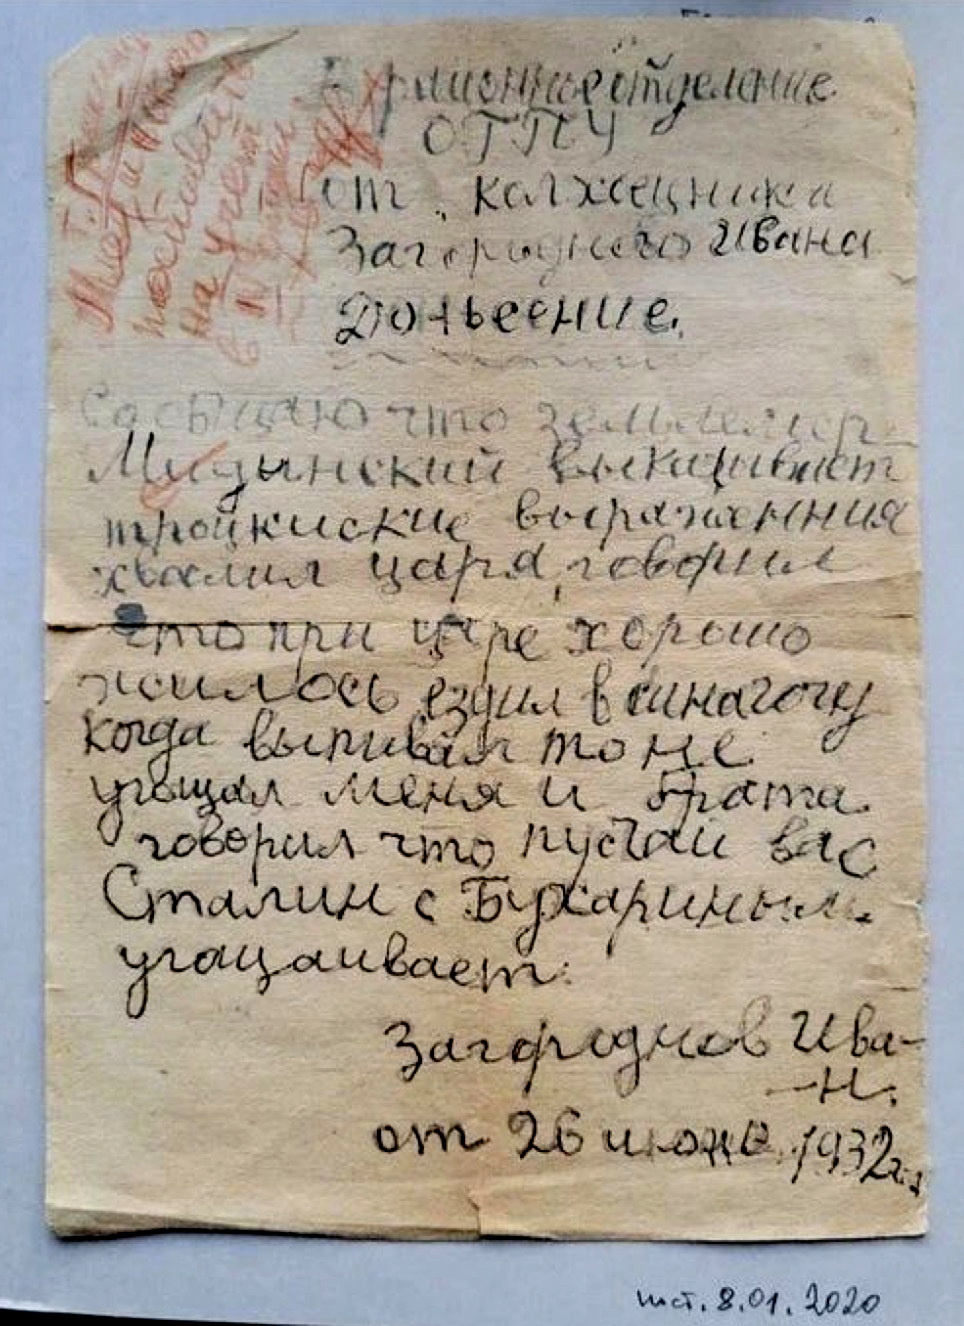 В раионное отделение
ОГПУ
от колхозника
Загороднего Ивана
Доньесение.
Саобщаю что землемер
Мидынский выкидывает
троцкиские выражения
хвалил царя, говорил
что при царе хорошо
жилось ездил в синагогу
когда выпивал то не
угощал меня и брата
говорил что пускай вас
Сталин с Бухариным
угащаивает.
Загороднов Ива-
-н.
от 26 июня 1932г.
на учет
8.01.2020